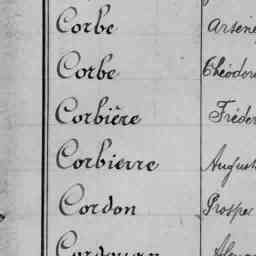 Corbe Arsène
Corbe Théodore
Corbière Fréder
Corbierre August
Cordon Prosper
Cordouan